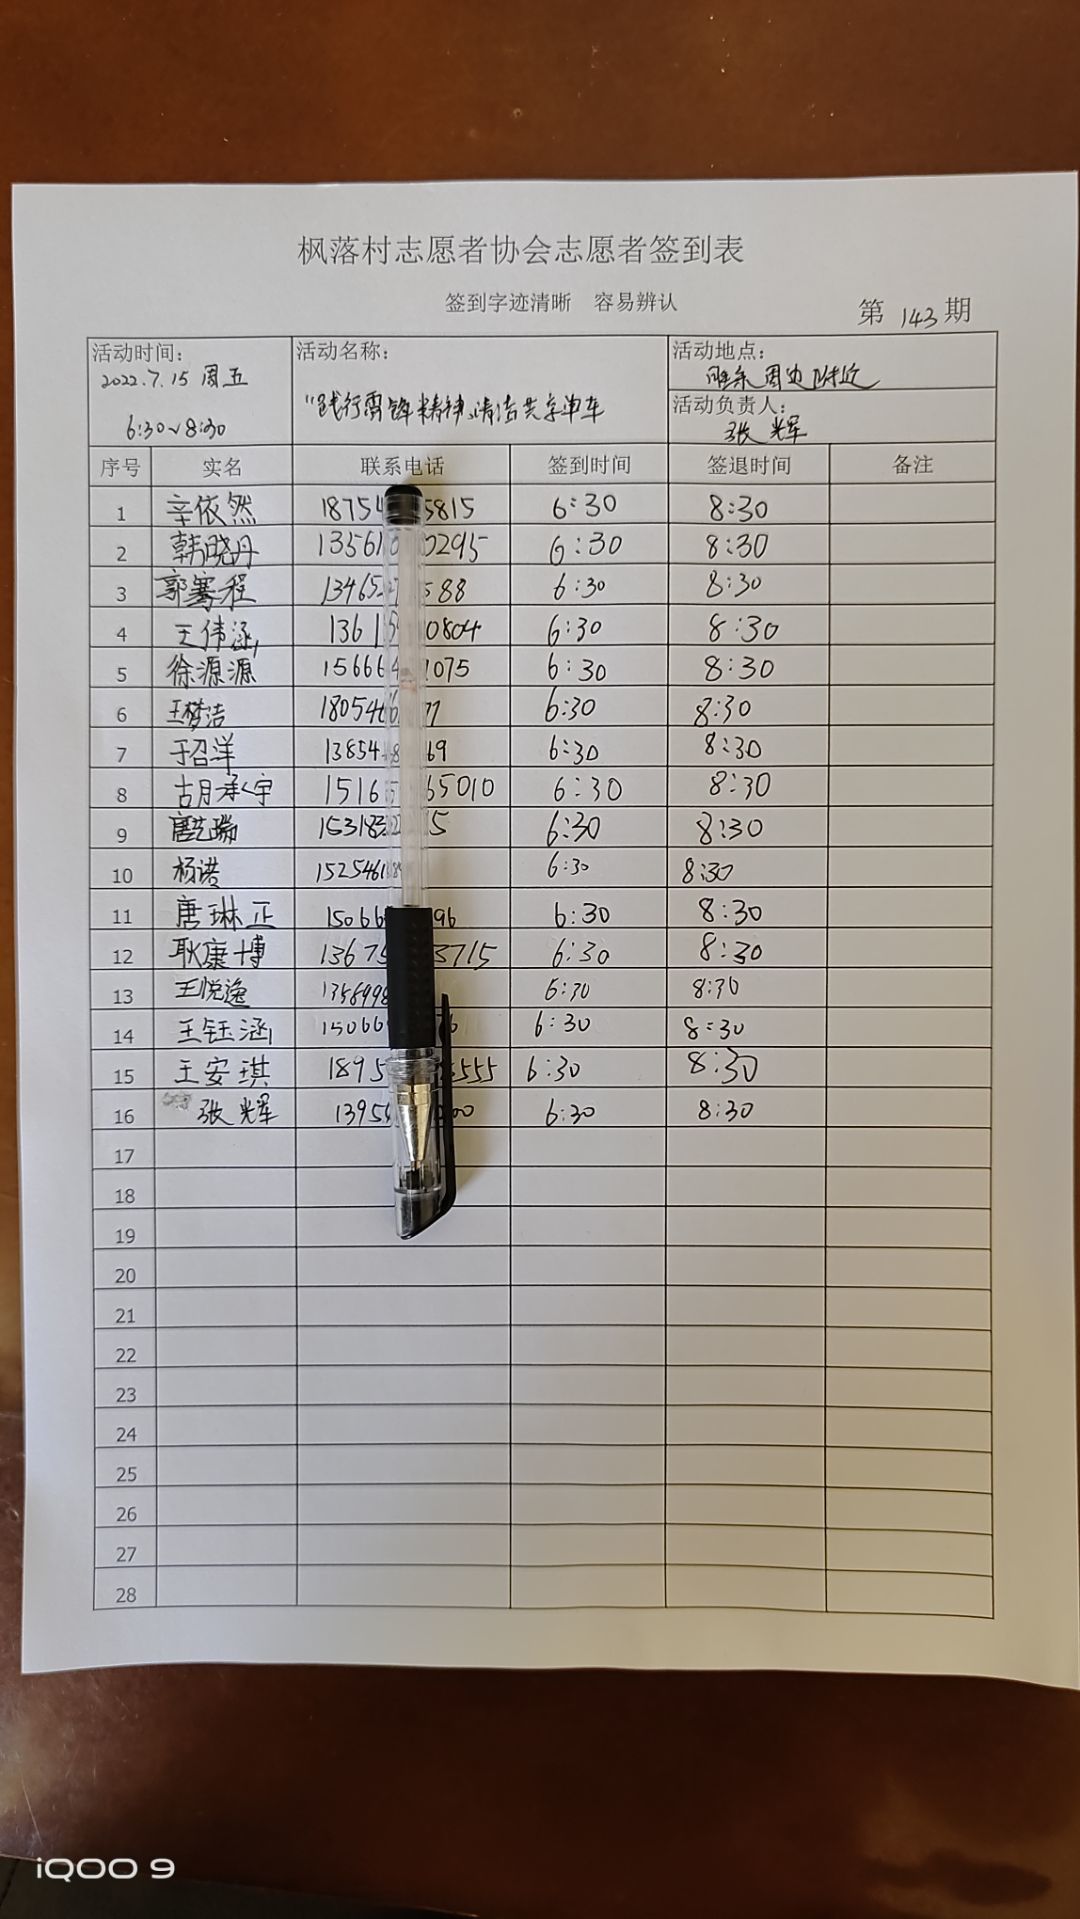 枫落村志愿者协会志愿者签到表
签到字迹清晰 容易辨认
第 143 期
活动时间: 2022.7.15 周五 6:30~8:30
活动名称: "践行雷锋精神、清洁共享单车
活动地点: 周边附近
活动负责人: 张辉
序号 实名 联系电话 签到时间 签退时间 备注
1 辛依然 18754 5815 6:30 8:30
2 韩晓丹 13561 0295 6:30 8:30
3 郭骞程 13465 588 6:30 8:30
4 王伟涵 1361 0804 6:30 8:30
5 徐源源 15666 1075 6:30 8:30
6 王梦洁 18054 6:30 8:30
7 于召洋 13854 69 6:30 8:30
8 胡承宇 1516 65010 6:30 8:30
9 唐艺瑞 153183 5 6:30 8:30
10 杨诺 1525461 6:30 8:30
11 唐琳正 15066 96 6:30 8:30
12 耿康博 13675 3715 6:30 8:30
13 王悦逸 1356998 6:30 8:30
14 王钰涵 15066 6:30 8:30
15 王安琪 1895 555 6:30 8:30
16 张辉 1395 00 6:30 8:30
17
18
19
20
21
22
23
24
25
26
27
28
iQOO 9